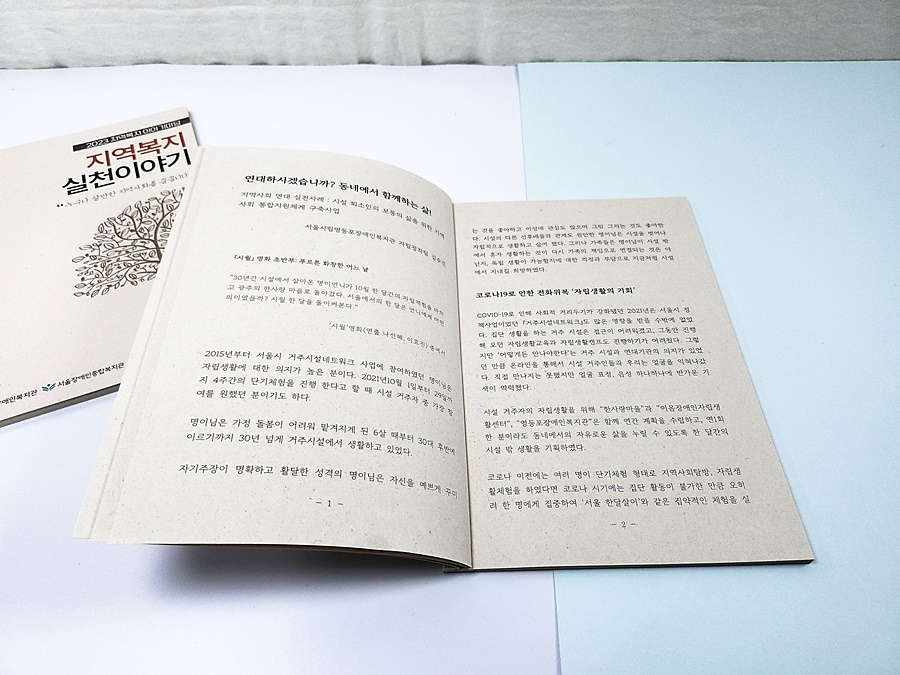 2023 지역복지 이야기마당
지역복지
실천이야기
"누구나 살만한 지역사회를 꿈꿉니다
애인복지관
서울장애인종합복지관
연대하시겠습니까? 동네에서 함께하는 삶!
지역사회 연대 실천사례 : 시설 퇴소인의 보통의 삶을 위한 지역
사회 통합지원체계 구축사업
서울시립영등포장애인복지관 자립정착팀 김수진
「시월」 영화 초반부: 푸르른 화창한 어느 날
"30년간 시설에서 살아온 명이언니가 10월 한 달간의 자립체험을 마치
고 광주의 한사랑 마을로 돌아갔다. 서울에서의 한 달은 언니에게 어떤
의미였을까? 시월 한 달을 돌이켜본다."
'시월'영화(연출 나선혜, 이효진) 중에서
2015년부터 서울시 거주시설네트워크 사업에 참여하였던 명이님은
자립생활에 대한 의지가 높은 분이다. 2021년10월 1일부터 29일까
지 4주간의 단기체험을 진행 한다고 할 때 시설 거주자 중 가장 참
여를 원했던 분이기도 하다.
명이님은 가정 돌봄이 어려워 맡겨지게 된 6살 때부터 30대 후반에
이르기까지 30년 넘게 거주시설에서 생활하고 있었다.
자기주장이 명확하고 활달한 성격의 명이님은 자신을 예쁘게 꾸미
- 1 -
는 것을 좋아하고 이성에 관심도 많으며 그림 그리는 것도 좋아한
다. 시설의 다른 선후배들과 관계도 원만한 명이님은 시설을 벗어나
자립적으로 생활하고 싶어 했다. 그러나 가족들은 명이님이 시설 밖
에서 혼자 생활하는 것이 다시 가족의 책임으로 연결되는 것은 아
닌지, 독립 생활이 가능할지에 대한 걱정과 부담으로 지금처럼 시설
에서 지내길 희망하였다.
코로나19로 인한 전화위복 '자립생활의 기회'
COVID-19로 인해 사회적 거리두기가 강화됐던 2021년은 서울시 정
책사업이었던 「거주시설네트워크」도 많은 영향을 받을 수밖에 없었
다. 집단 생활을 하는 거주 시설은 접근이 어려워졌고, 그동안 진행
해 오던 자립생활교육과 자립생활캠프도 진행하기가 어려웠다. 그렇
지만 '어떻게든 만나야한다'는 거주 시설과 연대기관의 의지가 있었
던 만큼 온라인을 통해서 시설 거주인들과 우리는 얼굴을 익혀나갔
다. 직접 만나지는 못했지만 얼굴 표정, 음성 하나하나에 반가운 기
색이 역력했다.
시설 거주자의 자립생활을 위해 "한사랑마을"과 "이음장애인자립생
활센터", "영등포장애인복지관"은 함께 연간 계획을 수립하고, 연1회
한 분이라도 동네에서의 자유로운 삶을 누릴 수 있도록 한 달간의
시설 밖 생활을 기획하였다.
코로나 이전에는 여러 명이 단기체험 형태로 지역사회탐방, 자립생
활체험을 하였다면 코로나 시기에는 집단 활동이 불가한 만큼 오히
려 한 명에게 집중하여 '서울 한달살이'와 같은 집약적인 체험을 실
- 2 -